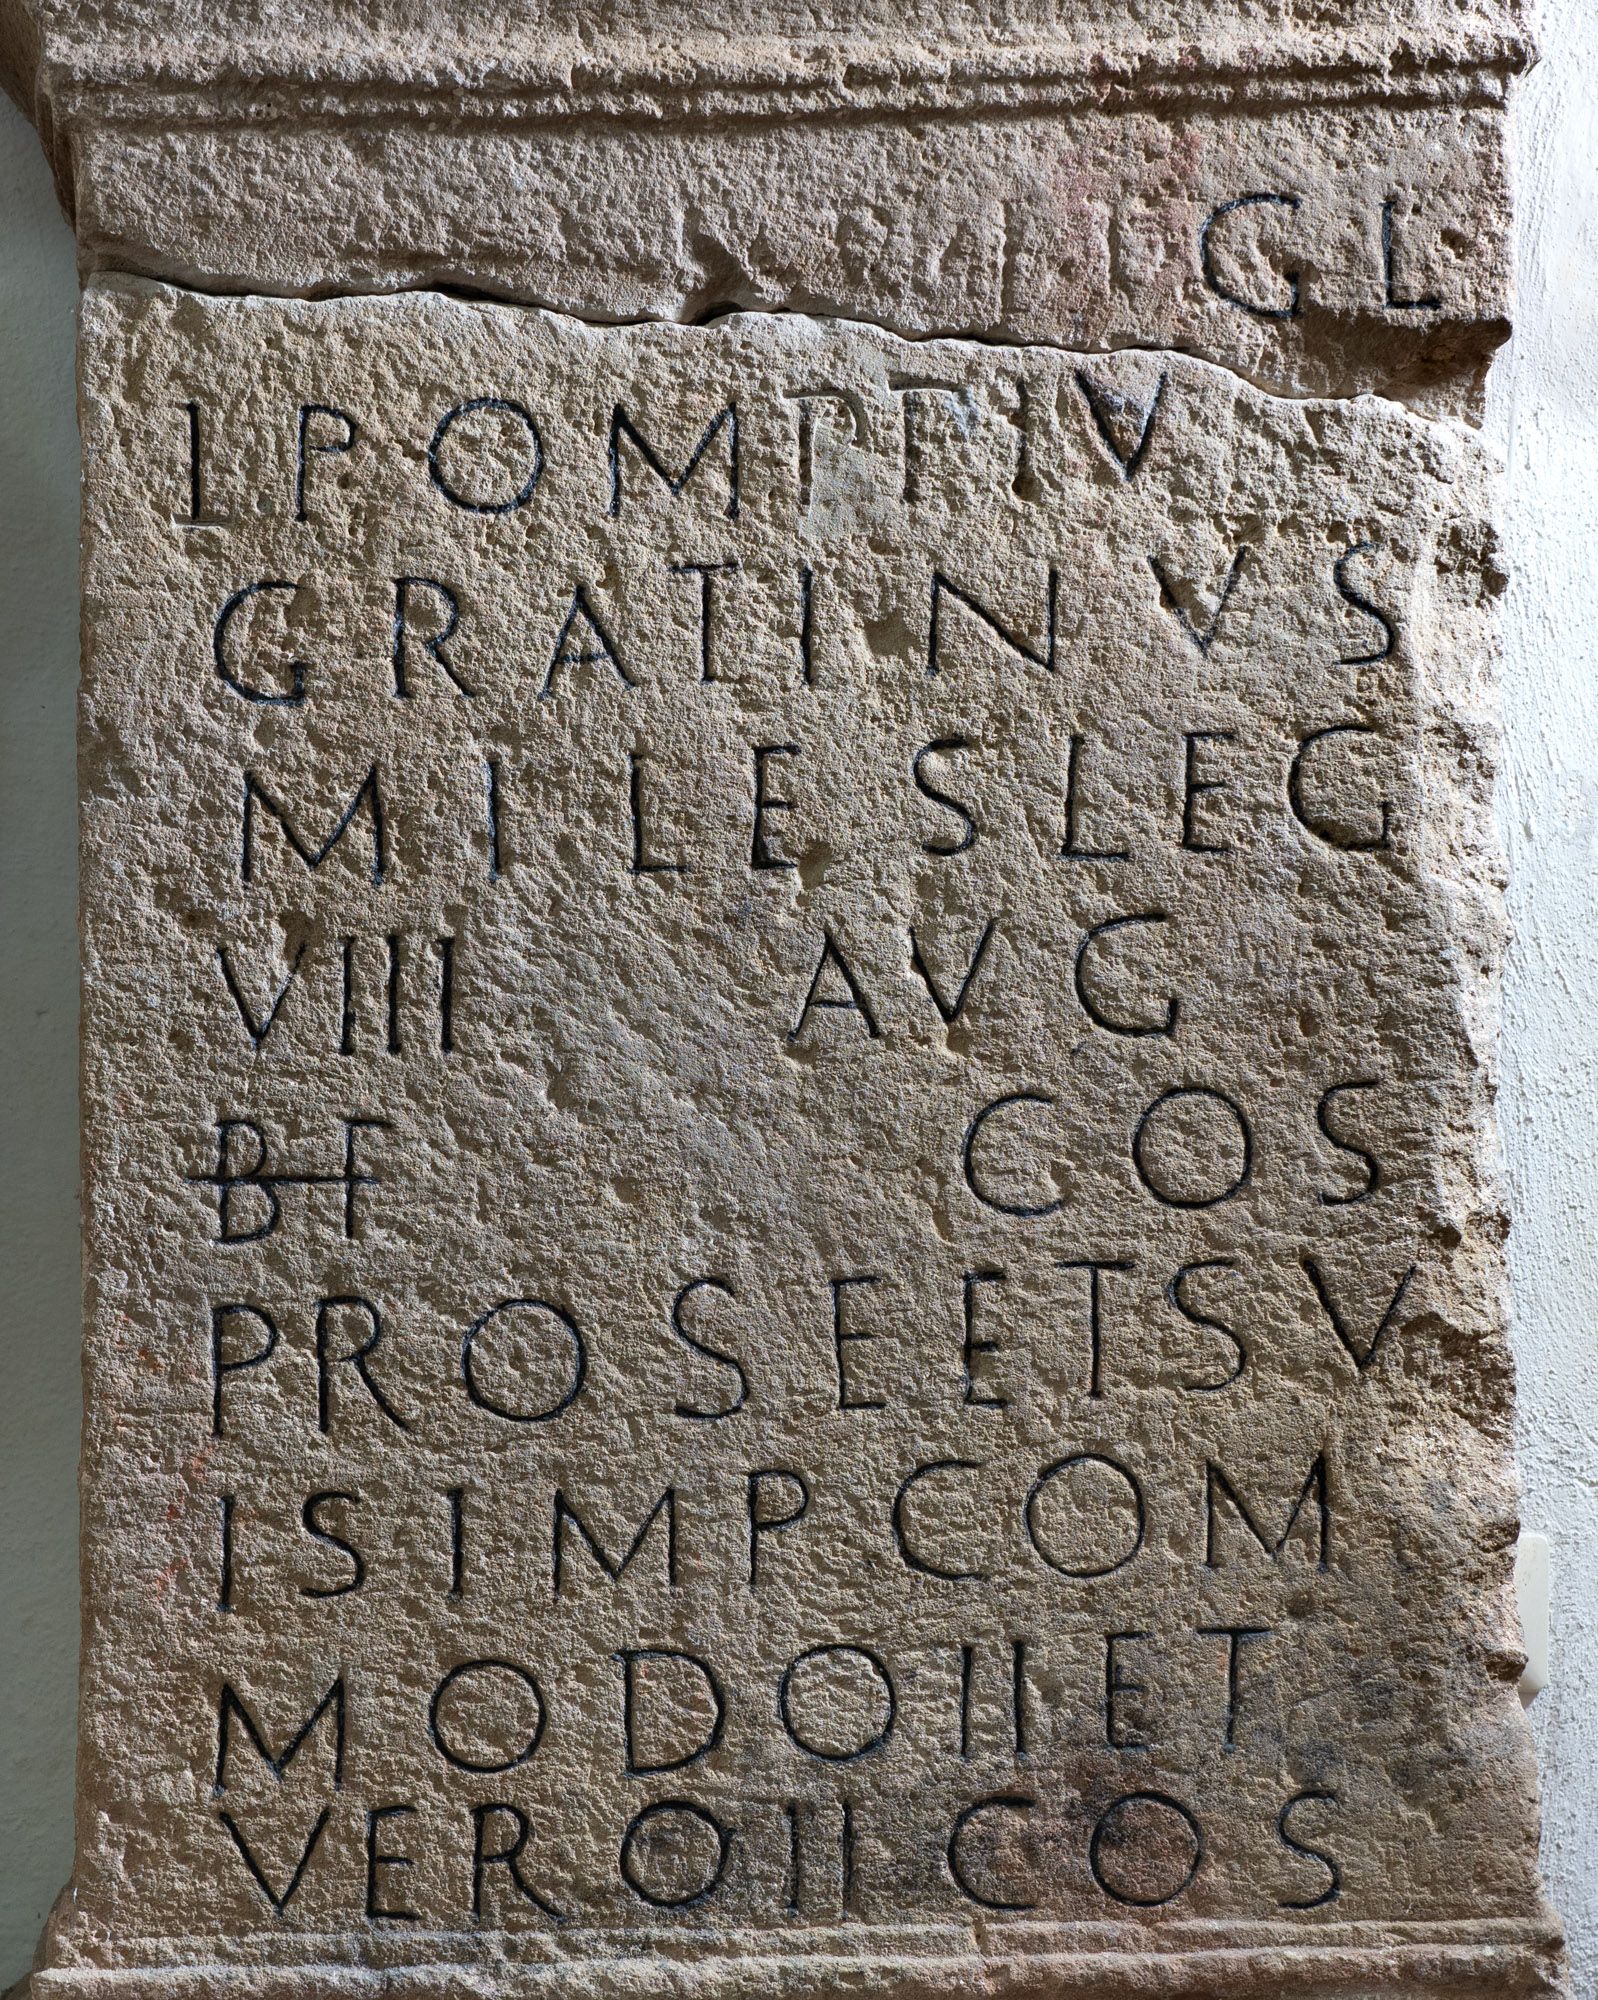 G L
L POMPTIV
GRATINVS
MILES LEG
VIII AVG
BF COS
PRO SE ET SV
IS IMP COM
MODO II ET
VERO II COS